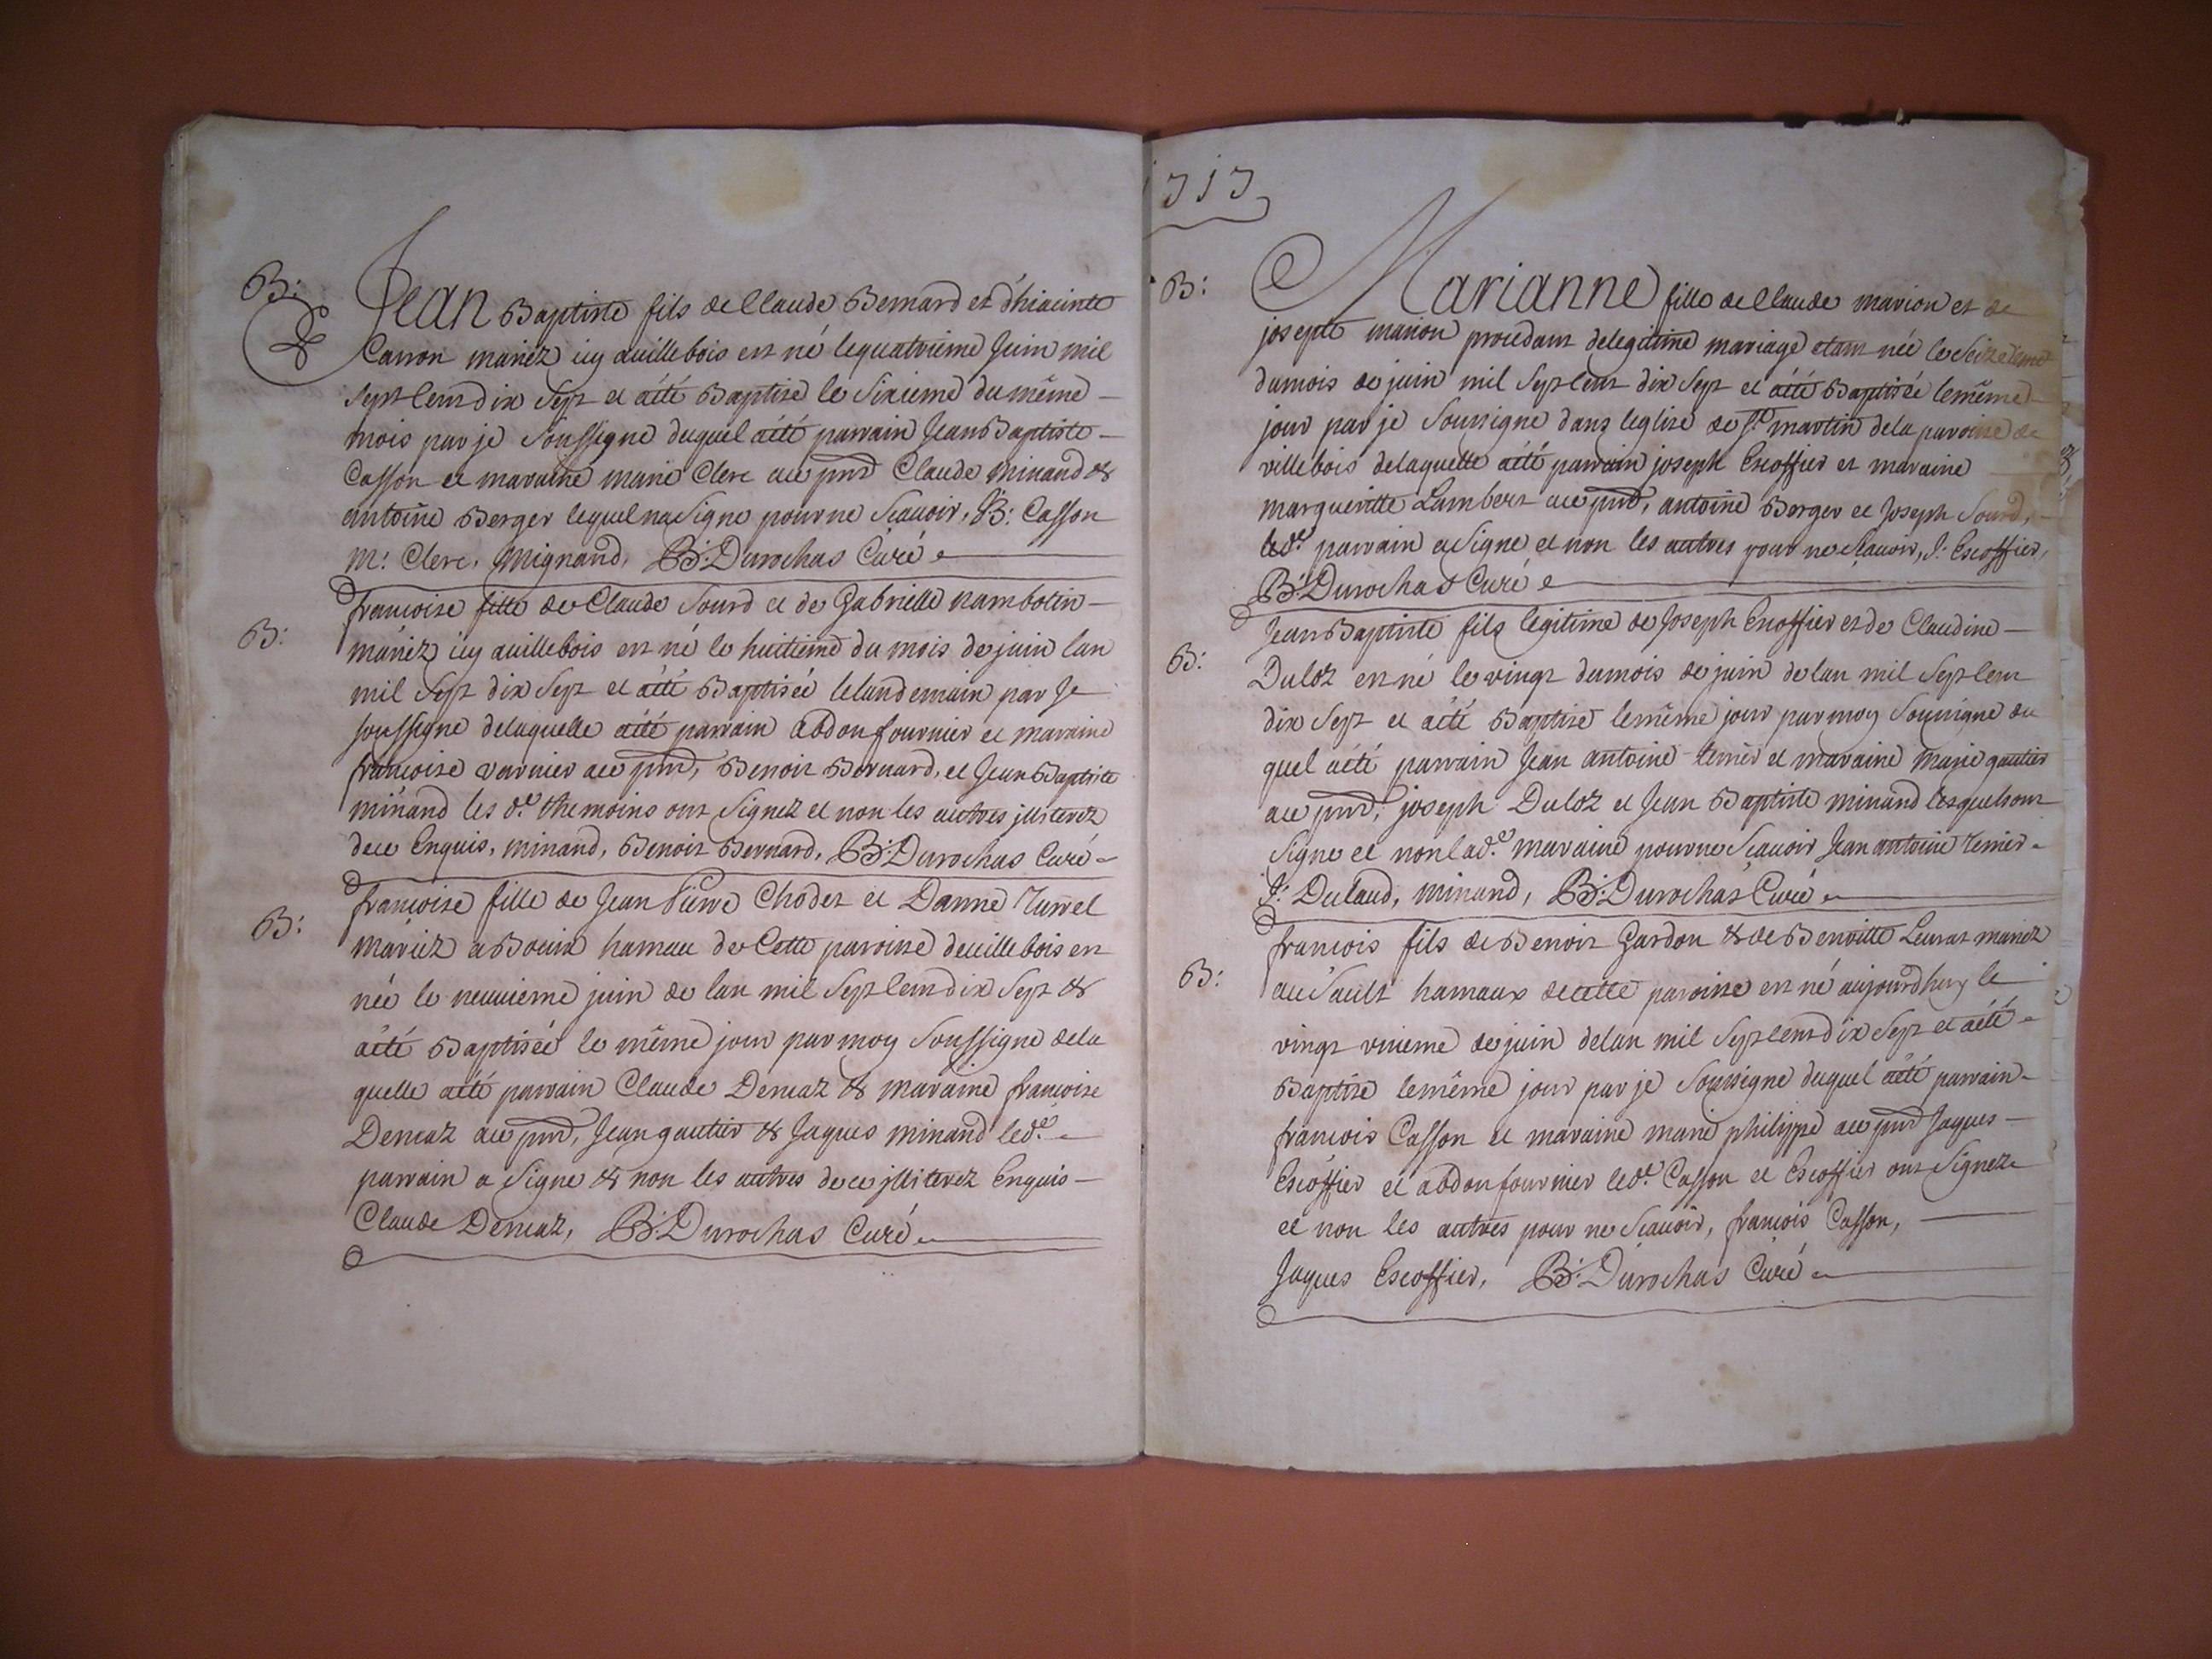 B:
Jean Baptiste fils de Claude Bernard et d'hiacinte
Carron mariez icy avillebois est né le quatrieme Juin mil
sept cent dix sept et a été Baptisé le Sixieme du même
mois par je Soussigne duquel a été parrain Jean Baptiste
Casson et maraine marie Clerc au pnd Claude minand &
antoine Berger lequel na Signe pour ne Scauoir, J B: Casson
M: Clerc, Mignand, B: Durochas Curé
B:
francoise fille de Claude Sourd et de Gabrielle rambolin
mariez icy avillebois est né le huitieme du mois de juin lan
mil Sept dix Sept et a été Baptisée le landemain par Je
soussigne delaquelle a été parrain abdon fournier et maraine
francoise varnier au pnd, Benoit Bernard, et Jean Baptiste
minand les d.e themoins ont Signez et non les autres jlliterez
de ce Enquis, minand, Benoit Bernard, B: Durochas Curé
B:
francoise fille de Jean Pierre Chodet et Danne
mariez a Bouis hameau de Cette paroisse de villebois est
née le neuuieme juin de lan mil Sept Cent dix Sept &
a été Baptisée le même jour par moy Soussigne dela
quelle a été parrain Claude Demaz & maraine francoise
Demaz au pnd, Jean gautier & Jaques minand led.e
parrain a Signe & non les autres de ce jlliterez Enquis
Claude Demaz, B: Durochas Curé
1717
B:
Marianne fille de Claude marion et de
josepte marion procedant de legitime mariage etant née le Seizieme
du mois de juin mil Sept Cent dix Sept et a été Baptisée le même
jour par je Soussigne dans leglise de St martin dela paroisse de
villebois delaquelle a été parrain joseph Escoffier et maraine
margueritte Lambert au pnd, antoine Berger et Joseph Sourd,
led.e parrain a Signe et non les autres pour ne Scauoir, J: Escoffier,
B: Durochas Curé
B:
Jean Baptiste fils legitime de Joseph Escoffier et de Claudine
Duloz est né le vingt du mois de juin de lan mil Sept Cent
dix Sept et a été Baptise le même jour par moy Soussigne du
quel a été parrain Jean antoine tenier et maraine Marie gautier
au pnd, joseph Duloz et Jean Baptiste minand lesquels ont
Signe et non lad.e maraine pour ne Scauoir Jean antoine tenier
J: Dulaud, minand, B: Durochas Curé
B:
francois fils de Benoit Gardon & de Benoitte Leurat mariez
au Sault hamaux de cette paroisse est né aujourdhuy le
vingt vnieme de juin delan mil Sept Cent dix Sept et a été
Baptise le même jour par je Soussigne duquel a été parrain
francois Casson et maraine marie philippe au pnd Jaques
Escoffier et abdon fournier led.e Casson et Escoffier ont Signez
et non les autres pour ne Scauoir, francois Casson,
Jaques Escoffier, B: Durochas Curé